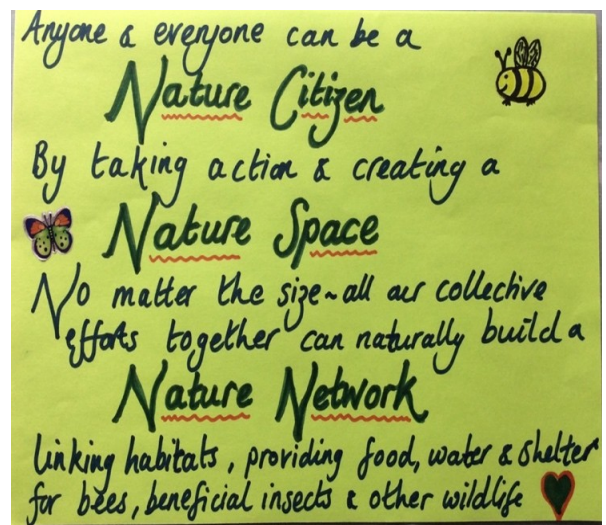 Anyone & everyone can be a
Nature Citizen
By taking action & creating a
Nature Space
No matter the size~all our collective
efforts together can naturally build a
Nature Network
linking habitats, providing food, water & shelter
for bees, beneficial insects & other wildlife